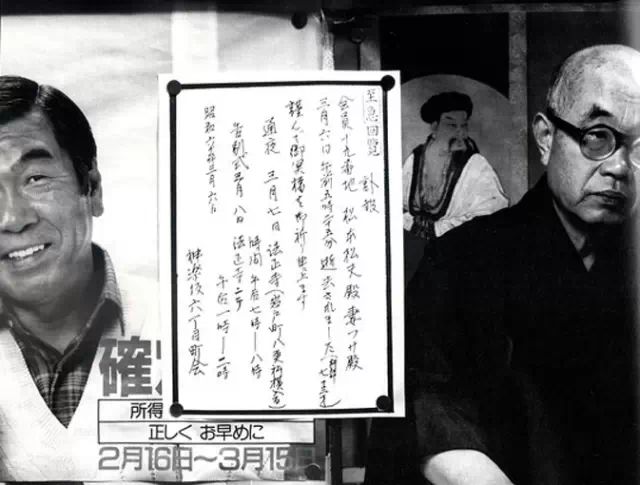 至急回覧
訃報
会員十九番地 松本松夫殿妻 殿
三月六日午前五時二十五分 逝去されました( 七十三才)
謹んで御冥福を御祈り申上ます
通夜 三月七日 法正寺(岩戸町八 更科横)
時間 午后七時―八時
告別式 三月八日 法正寺ニテ
午后一時―二時
昭和六十年三月六日
神楽坂六丁目町会
確
所得
正しく お早めに
2月16日～3月15日